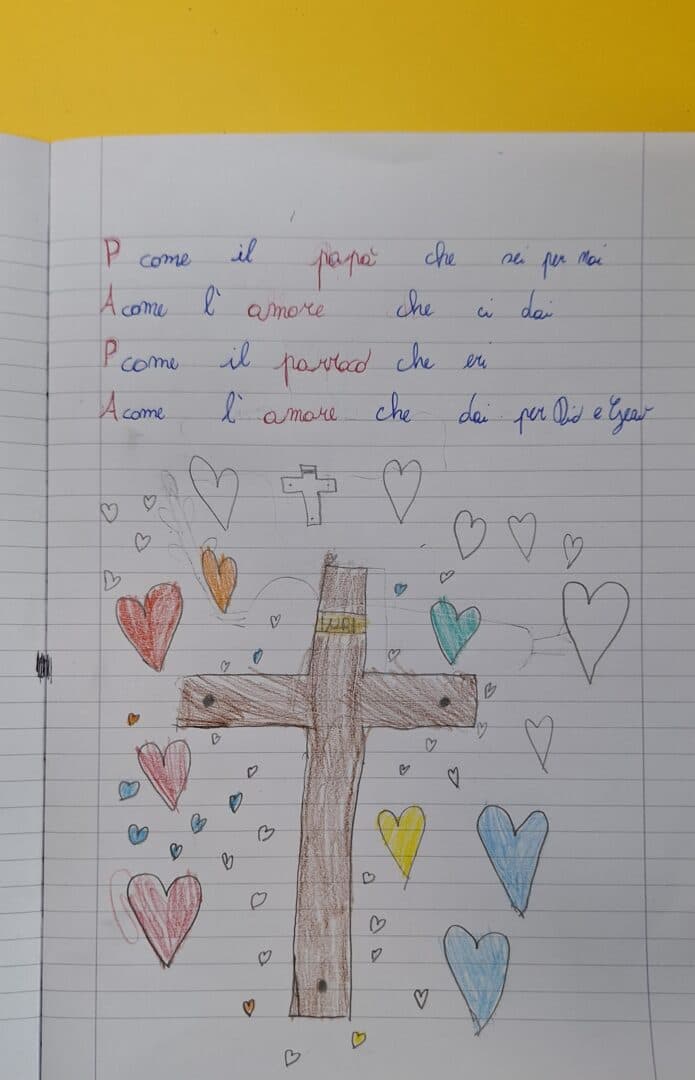 P come il papà che sei per noi
A come l'amore che ci dai
P come il parrod che eri
A come l'amore che dai per Dio e Gesù
INRI